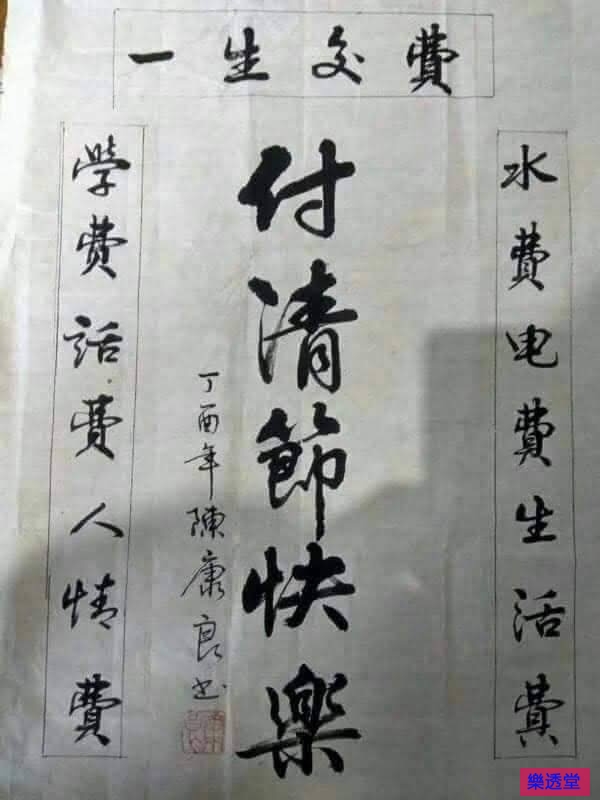 一生交費
水費电費生活費
付清節快樂
丁酉年陳康良书
學費話費人情費
樂透堂